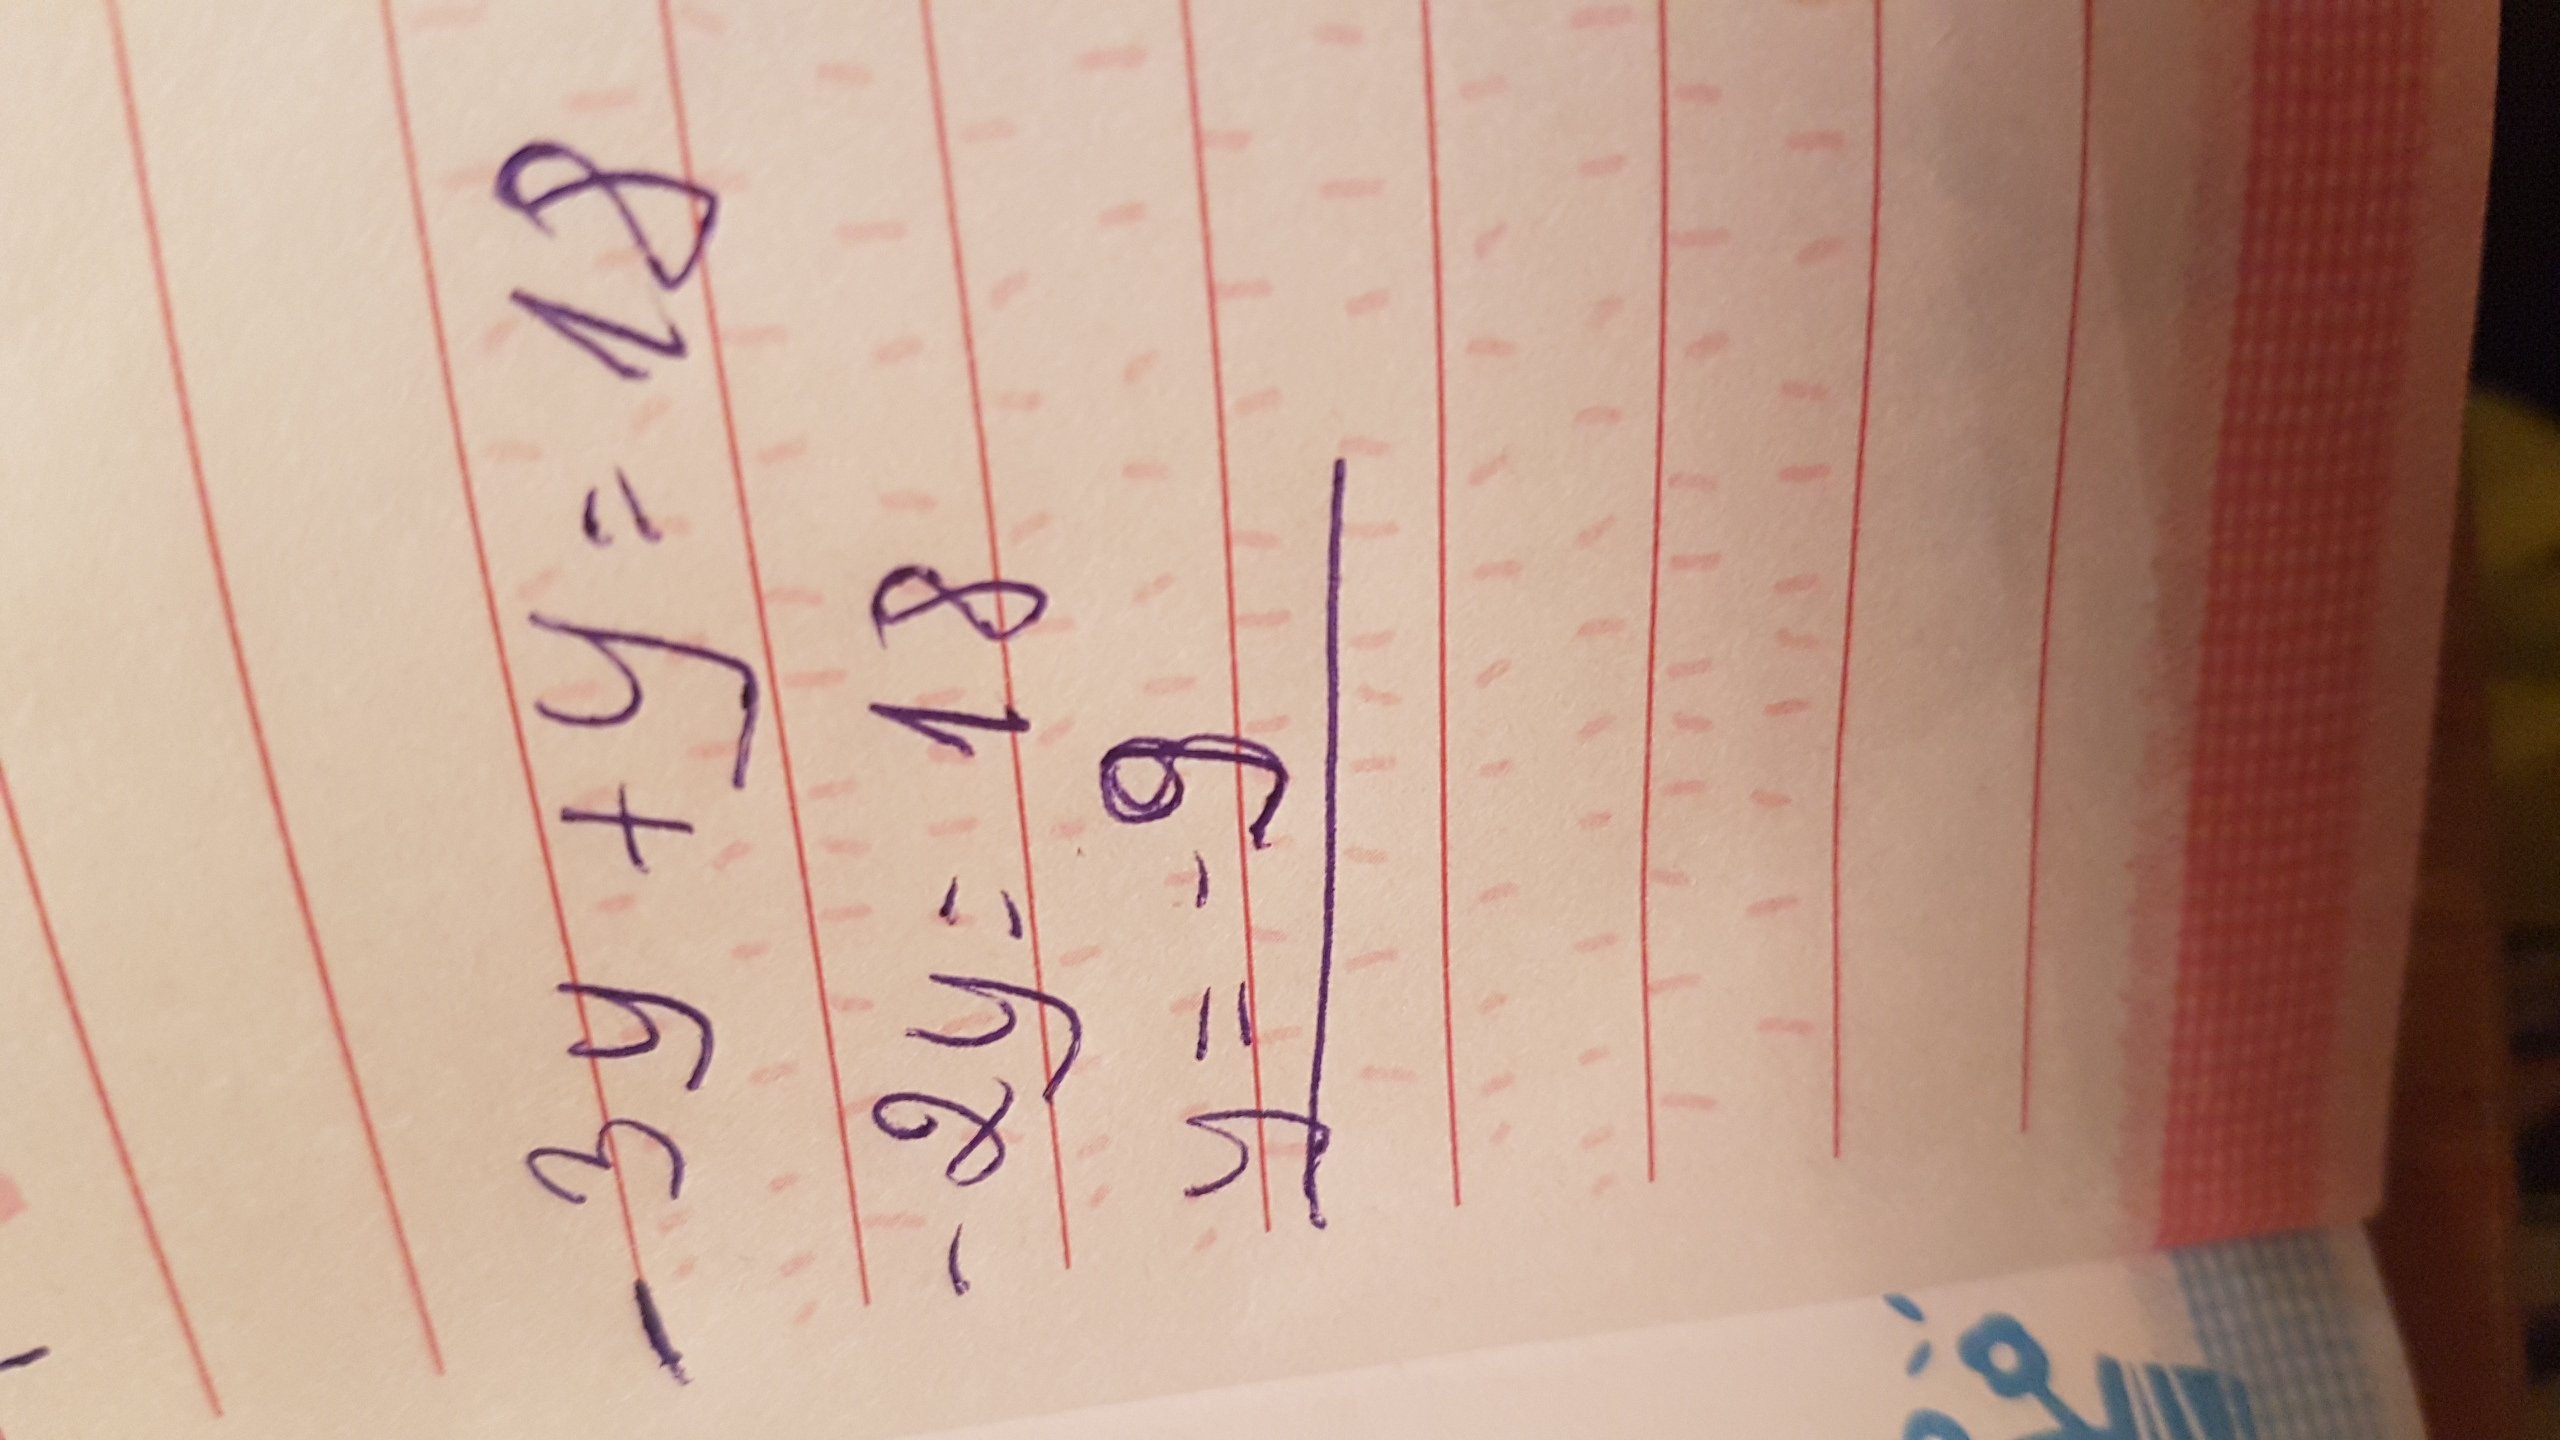 - 3y + y = 18
- 2y = 18
y = - 9